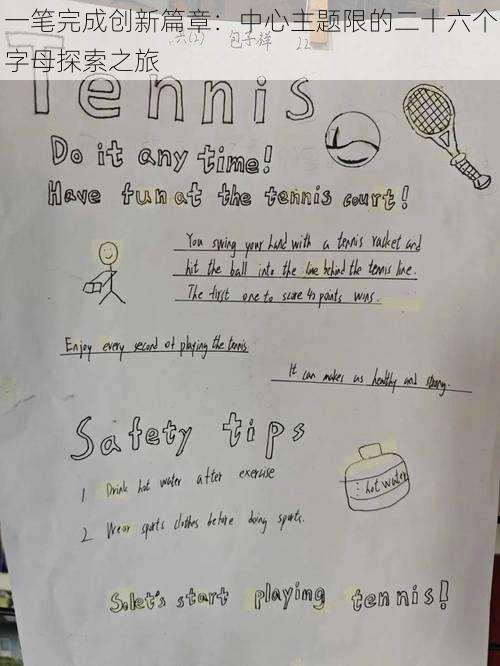 一笔完成创新篇章：中心主题限的二十六个
字母探索之旅
六(2) 包子祥 22
Tennis
Do it any time!
Have fun at the tennis court!
You swing your hand with a tennis racket and
hit the ball into the line behind the tennis line.
The first one to score 40 points wins.
Enjoy every second of playing the tennis
It can makes us healthy and strong.
Safety tips
1 Drink hot water after exercise
hot water
2 Wear sports clothes before doing sports.
So let's start playing tennis!